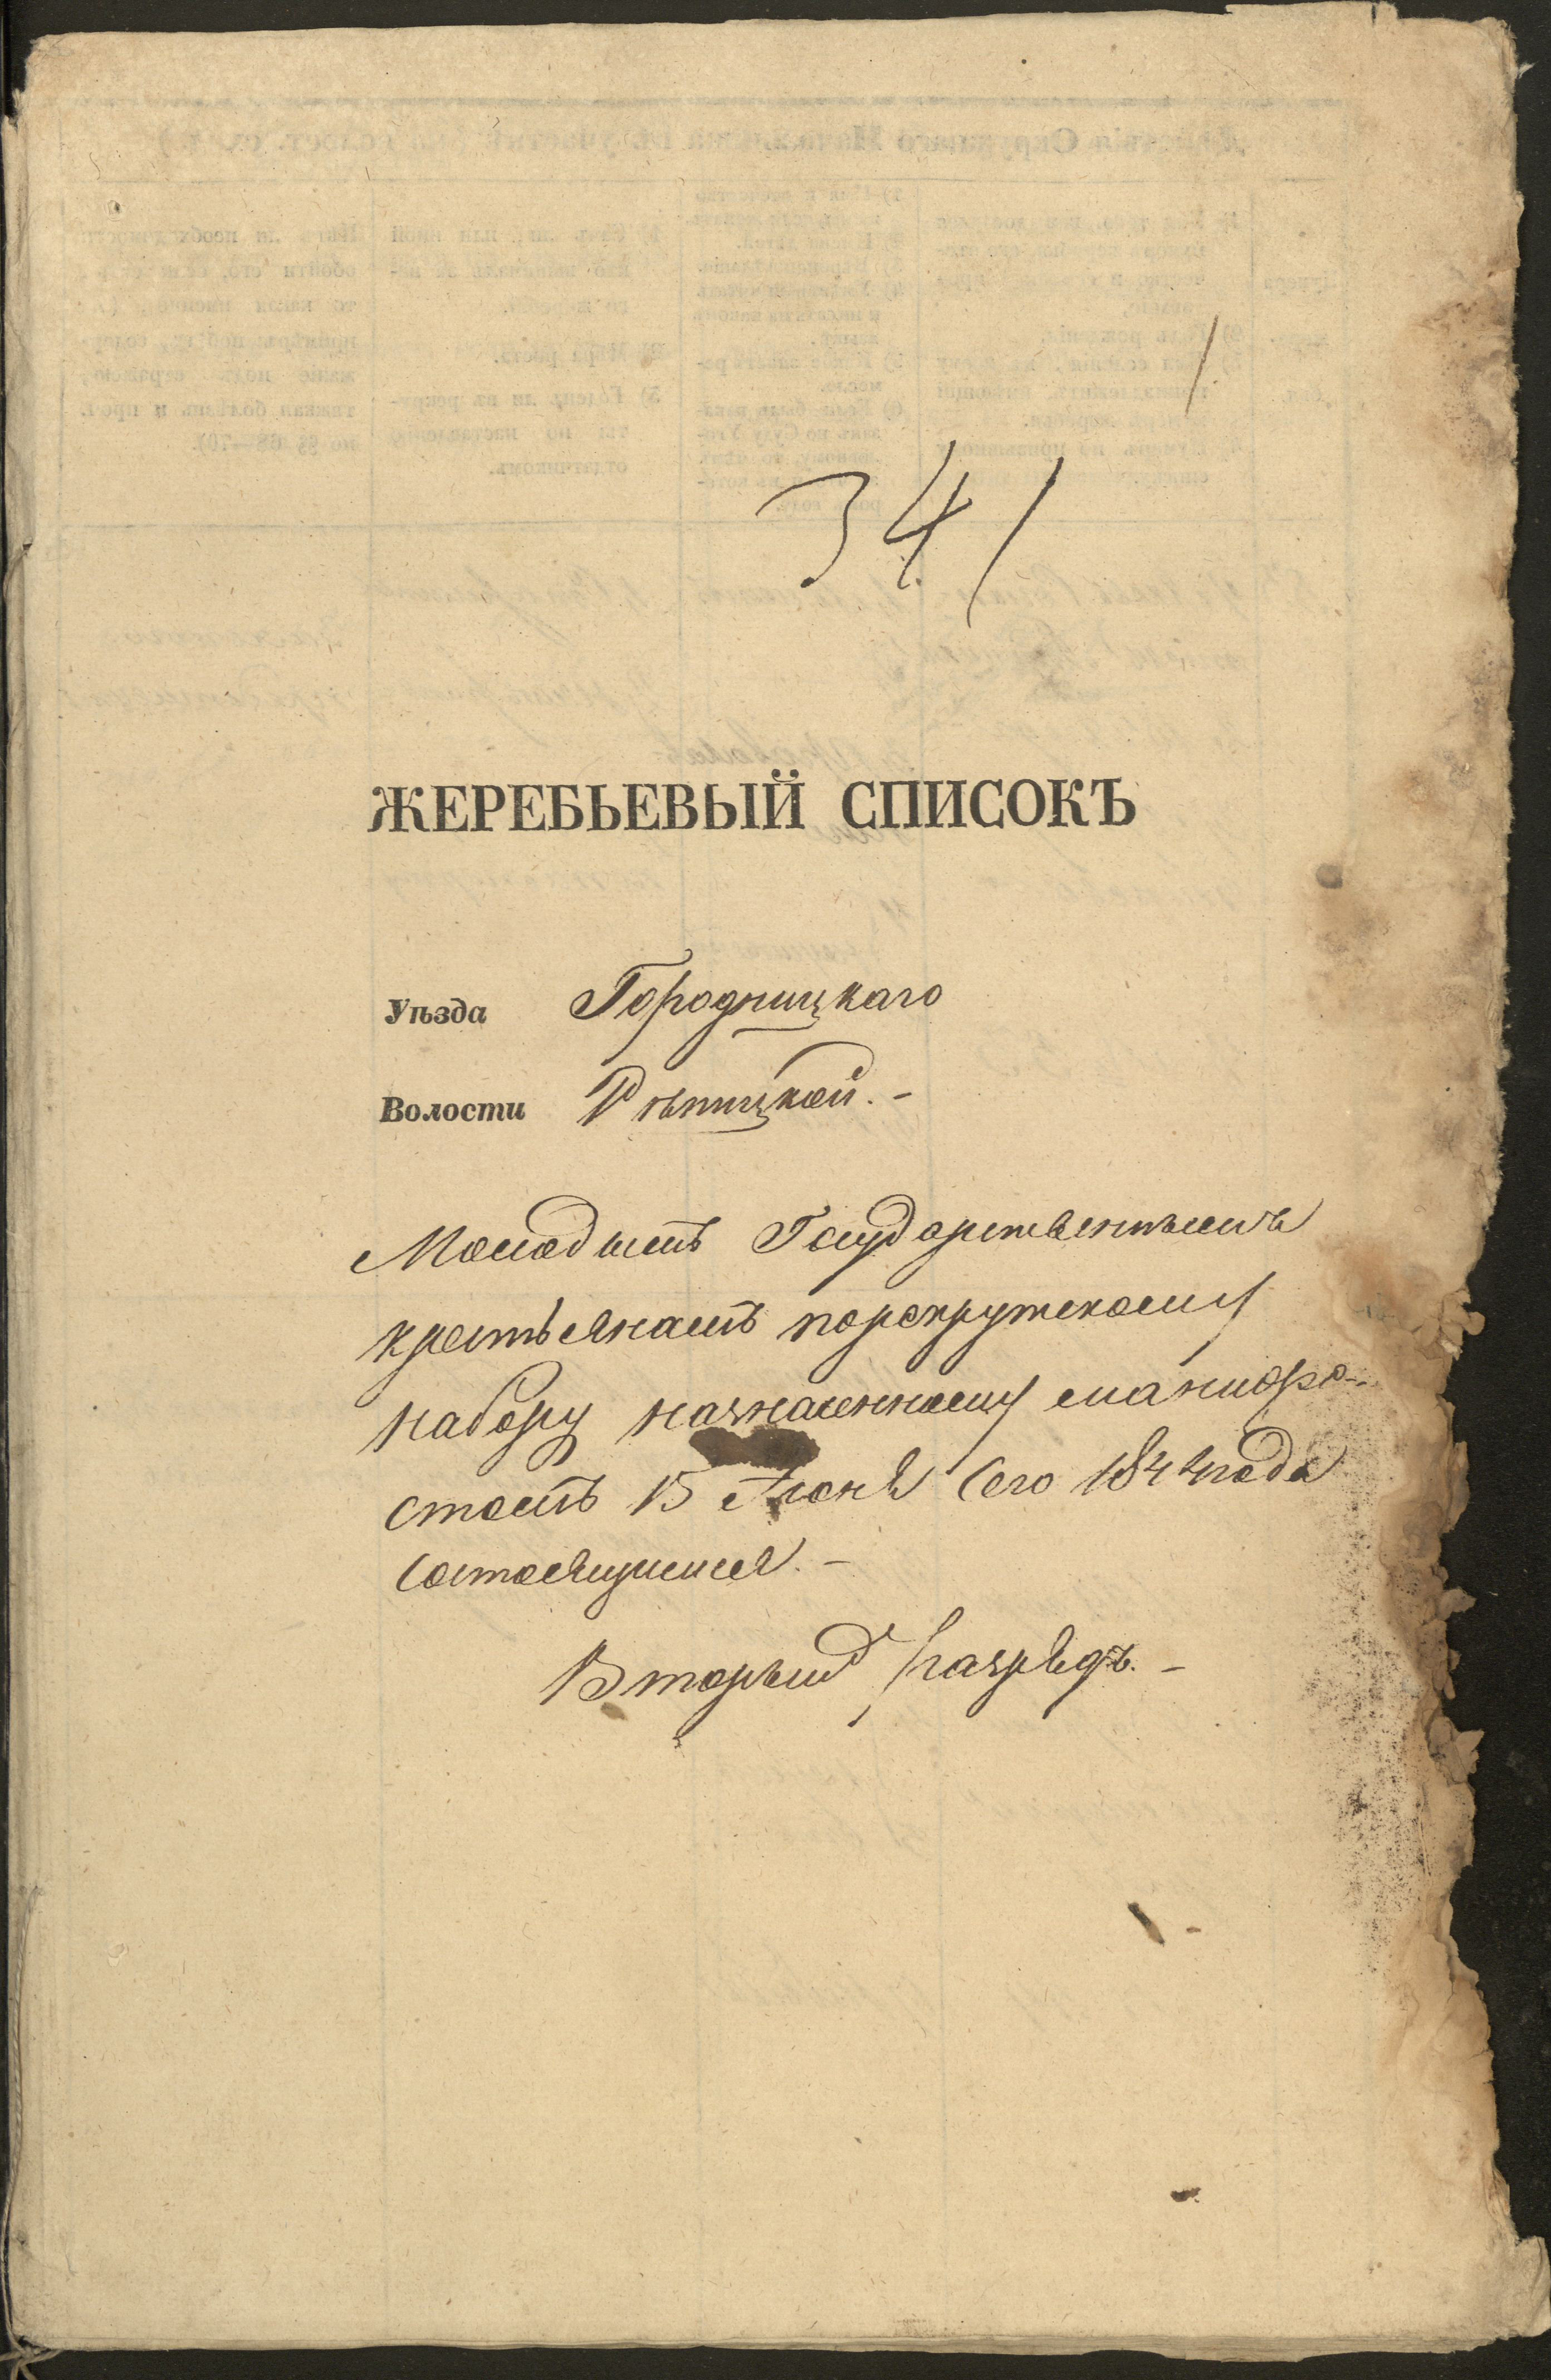 1.
341
ЖЕРЕБЬЕВЫЙ СПИСОКЪ
Уѣзда Городницкаго
Волости Рѣпицкой. -
Молодымъ Государственнымъ
крестьянамъ порекрутскому
набору назначенному манифе-
стомъ 15 Июня сего 1844 года
состоящимся. -
Вторый разрядъ. -